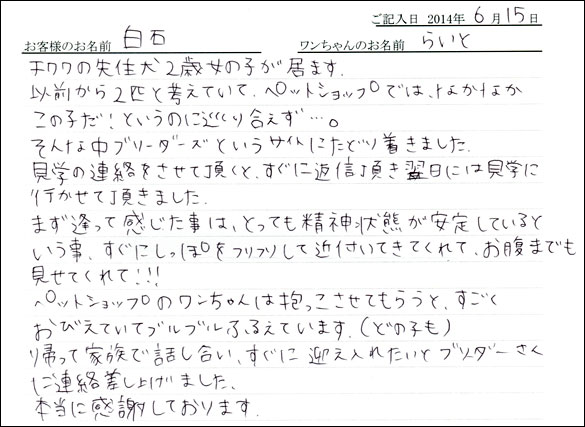 ご記入日 2014年 6月15日
お客様のお名前 白石 ワンちゃんのお名前 らいと
チワワの先住犬2歳女の子が居ます.
以前から2匹と考えていて、ペットショップでは、なかなか
この子だ!というのに巡り合えず…。
そんな中ブリーダーズというサイトにたどり着きました.
見学の連絡をさせて頂くと、すぐに返信頂き翌日には見学に
行かせて頂きました.
まず逢って感じた事は、とっても精神状態が安定していると
いう事、すぐにしっぽをフリフリして近付いてきてくれて、お腹までも
見せてくれて!!!
ペットショップのワンちゃんは抱っこさせてもらうと、すごく
おびえていてブルブルふるえています.(どの子も)
帰って家族で話し合い、すぐに迎え入れたいとブリーダーさん
に連絡差し上げました、
本当に感謝しております.